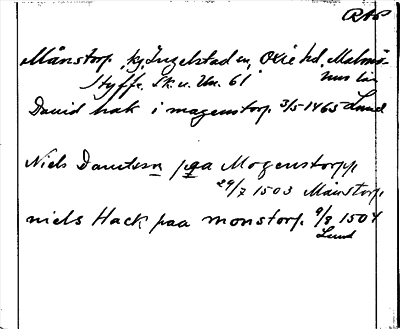 RAP
Månstorp, kj, Ingelstad sn, Oxie hd, Malmö-
hus län
Styffe. Sk. u. Un. 61
David hak i magenstorp. 3/5 1465 Lund
Niels Dauitssn paa Mogenstorpp
29/7 1503 Månstorp.
niels Hack paa monstorp. 9/8 1504
Lund